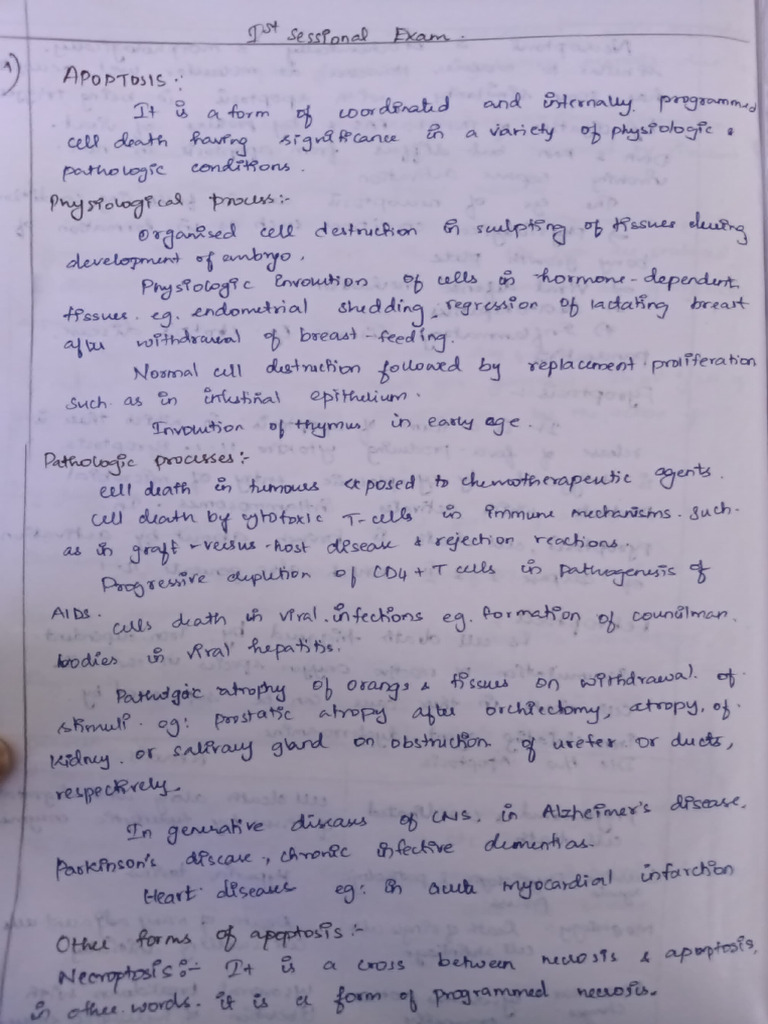 Ist Sessional Exam.
1) APOPTOSIS :-
It is a form of coordinated and internally programmed
cell death having significance in a variety of physiologic &
pathologic conditions.
Physiological process:-
Organised cell destruction in sculpting of tissues during
development of embryo.
Physiologic involution of cells in hormone-dependent
tissues. eg. endometrial shedding, regression of lactating breast
after withdrawal of breast-feeding.
Normal cell destruction followed by replacement proliferation
such as in intestinal epithelium.
Involution of thymus in early age.
Pathologic processes:-
cell death in tumours exposed to chemotherapeutic agents.
cell death by cytotoxic T-cells in immune mechanisms. such
as in graft-versus-host disease & rejection reactions.
Progressive depletion of CD4+T cells in pathogenesis of
AIDS.
cells death in viral infections eg. formation of councilman
bodies in viral hepatitis.
Pathologic atrophy of orangs & tissues on withdrawal of
stimuli. eg: prostatic atropy after orchiectomy, atropy of
kidney or salivary gland on obstruction of ureter or ducts,
respectively.
In generative diseases of CNS. in Alzheimer's disease,
Parkinson's disease, chronic infective dementias.
Heart diseases eg: in acute myocardial infarction
Other forms of apoptosis:-
Necroptosis:- It is a cross between necrosis & apoptosis,
in other words. it is a form of programmed necrosis.